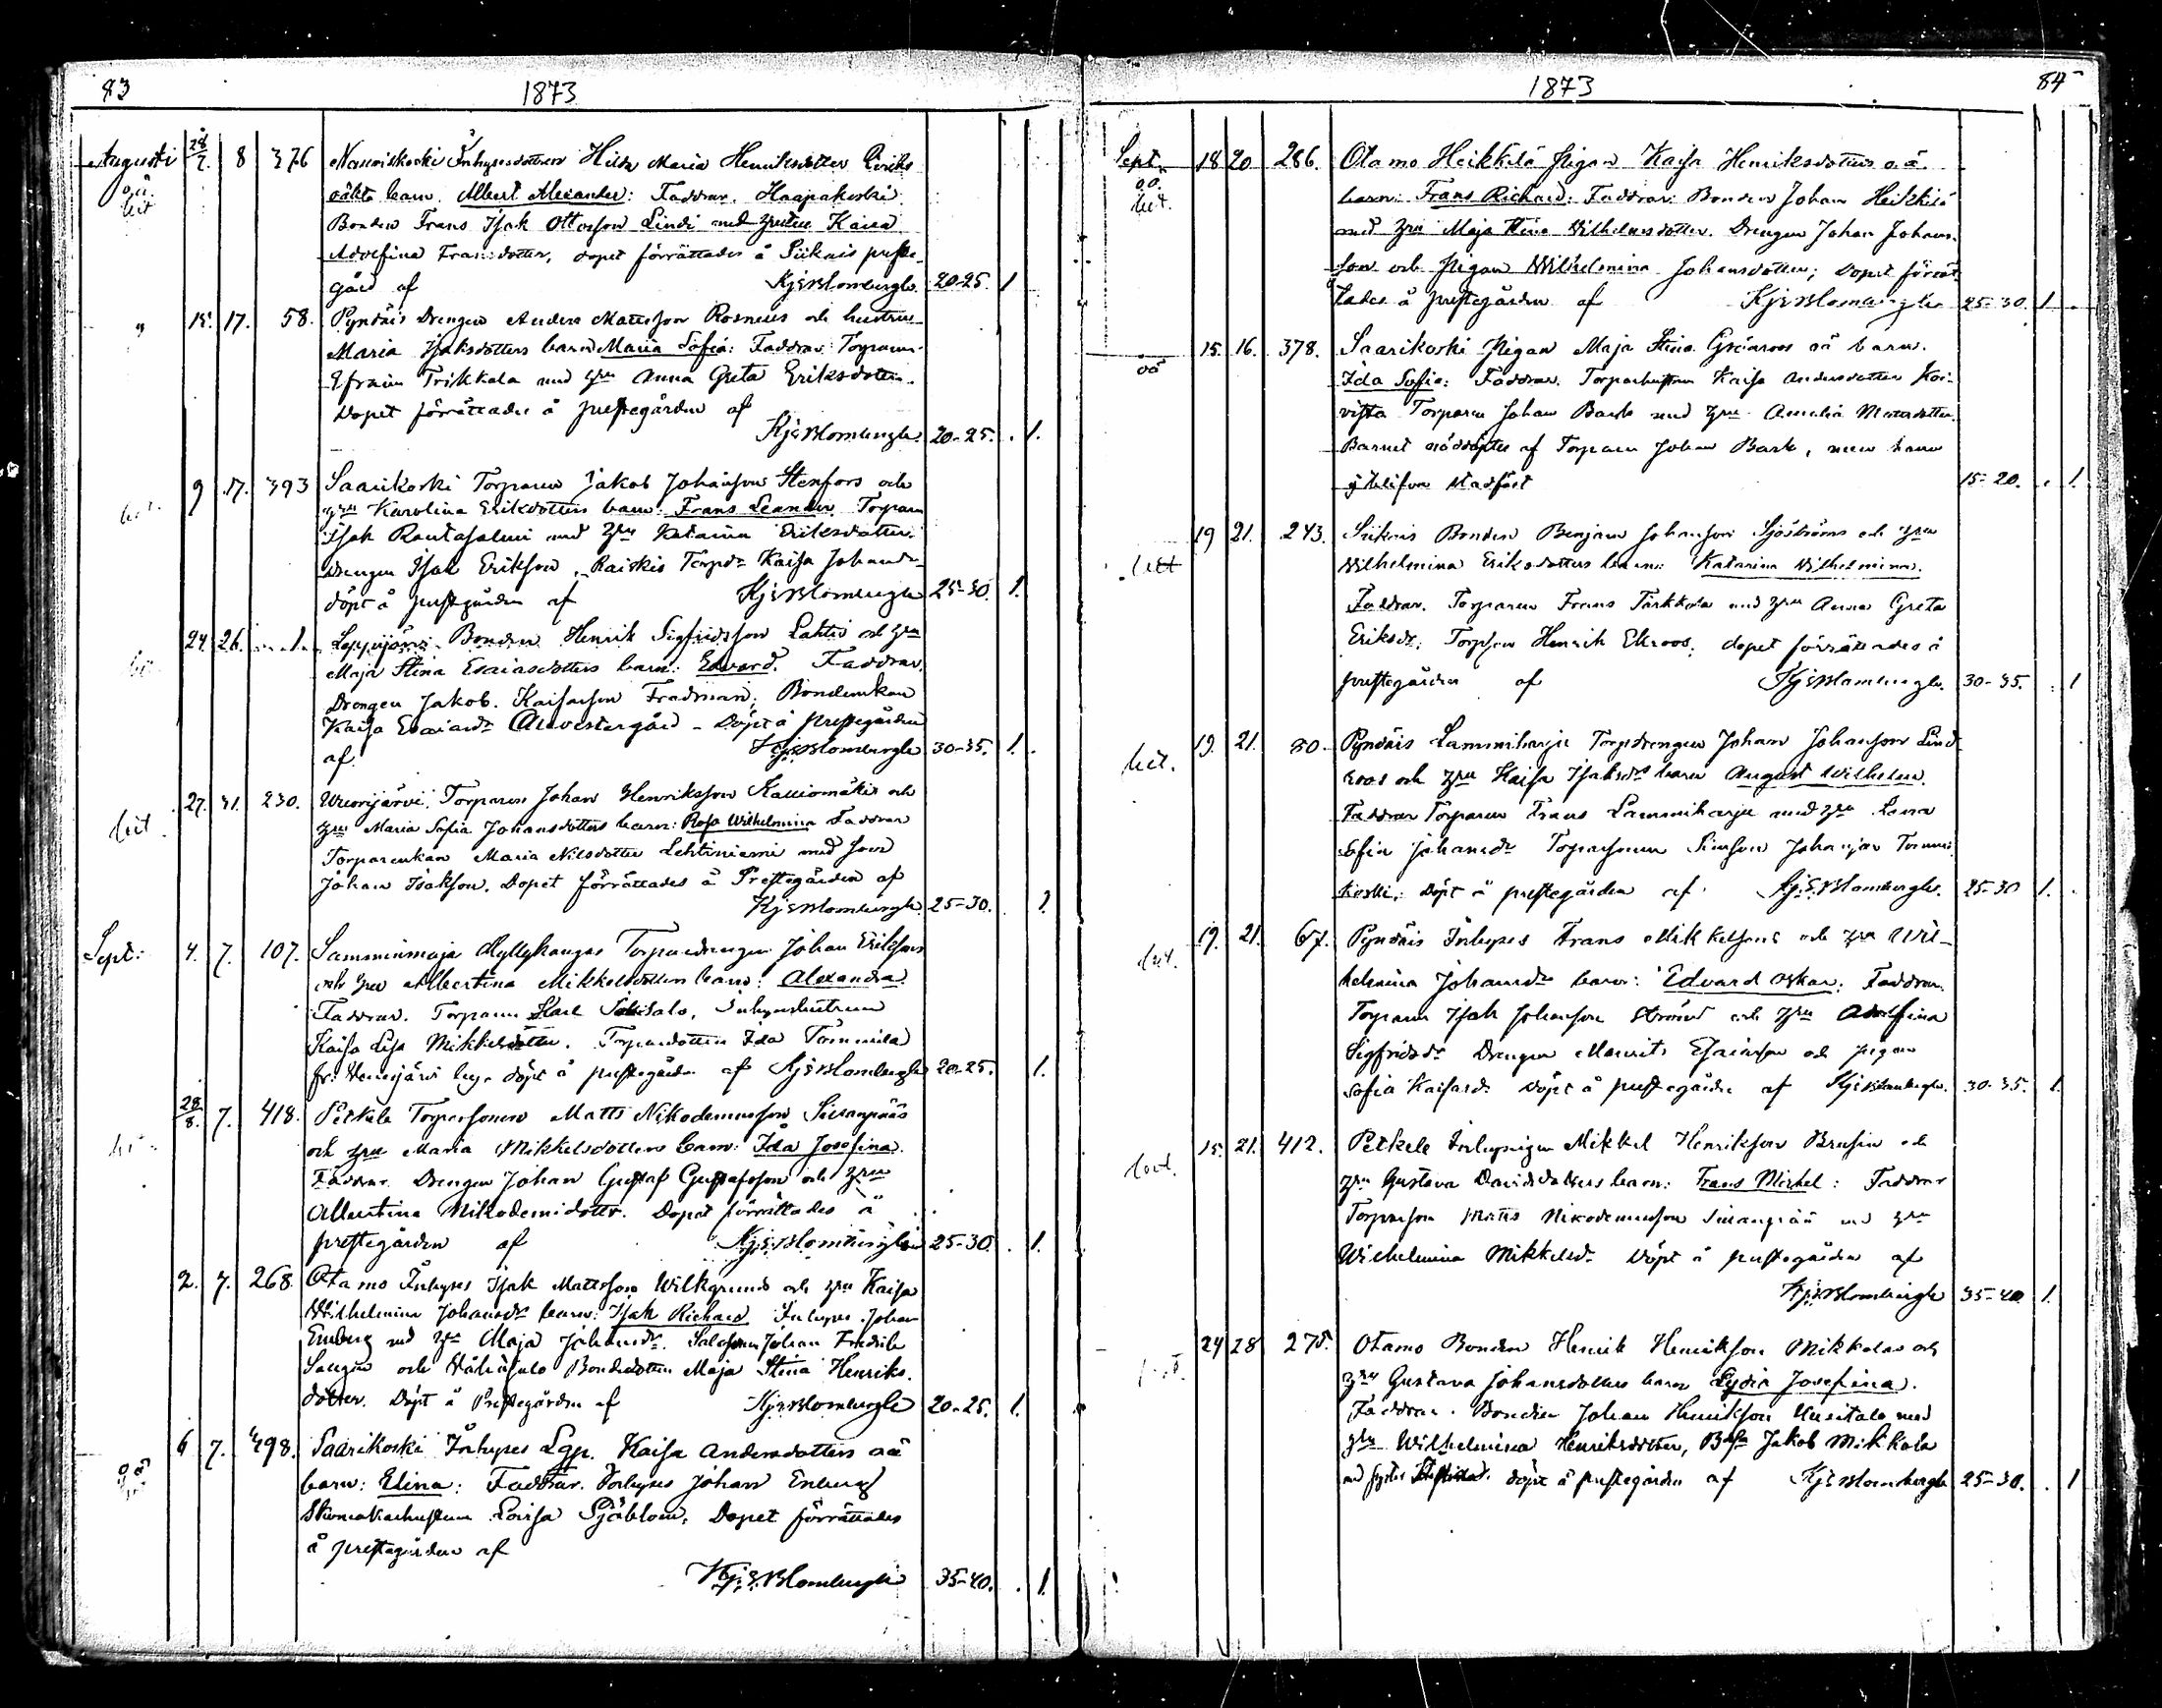 83
1873
Augusti 28/7. 8 376 Inhysesdottren Hilda Maria Henriksdotter
oä. oäkta barn. Albert Alexander: Faddrar. Haapakoski
Bonden Frans Isak Ottosson Lindi med hustru Kaisa
Adolfina Fransdotter, dopet förrättades å Siikais preste-
gård af Kjs Blombergh. 20-25. 1
" 15. 17. 58. Pyntäis Drengen Anders Mattsson Rosneus och hustrus
Maria Isaksdotters barn Maria Sofia: Faddrar: Torparen
Efraim Trikkala med hru Anna Greta Eriksdotter.
Dopet förrättades å prestegården af
Kjs Blombergh. 20-25. . 1.
9 17. 393 Saarikoski Torparen Jakob Johansson Stenfors och
hru Karolina Eriksdotters barn: Frans Leander. Torparen
Isak Rautasalmi med hru Katarina Eriksdotter.
Drengen Isak Erikson, Raiskio Torpdr Kaisa Johansdr
döpt å prestgården af Kjs Blombergh 25-30. 1.
24. 26. 1. Leppijärvi Bonden Henrik Sigfridsson Lahtis och hru
Maja Stina Esaiasdotters barn: Edvard. Faddrar.
Drengen Jakob Kaisasson Fradman; Bondenkan
Kaisa Esaiasdr Alavestergård - Döpt å prestegården
af. Kjs Blombergh 30-35. 1.
27. 31. 230. Wuorijärvi. Torparen Johan Henriksson Kalliomäkis och
hru Maria Sofia Johansdotters barn: Rosa Wilhelmina Faddrar
Torparenkan Maria Nilsdotter Lehtiniemi med son
Johan Isakson. Dopet förrättades å Prestegården af
Kjs Blombergh. 25-30. 1.
Sept: 4. 7. 107. Samminmaja Myllykangas Torparedrengen Johan Eriksons
och hru Albertina Mikkelsdotters barn: Alexandra.
Faddrar. Torparen Karl Inhyseshustrun
Kaisa Lisa Mikkelsdotter. Torparedottren Ida Tommila
fr. döpt å prestegården af Kjs Blombergh 20-25. 1.
28/8. 7. 418. Petkele Torparsonen Matts Nikodemusson Sieranpääs
och hru Maria Mikkelsdotters barn: Ida Josefina.
Faddrar. Drengen Johan Gustaf Gustafsson och hru
Albertina Nikodemidotter. Dopet förrättades å
prestegården af Kjs Blombergh 25-30. . 1.
2. 7. 268. Otamo Inhyses Isak Mattsson Wilkgrunds och hru Kaisa
Wilhelmina Johansdrs barn: Isak Richard Inhyses Johan
Enberg med hru Maja Johansdr. Johan Fredrik
och Vähäsalo Bondedottren Maja Stina Henriks-
dotter. Döpt å Prestegården af Kjs Blombergh 20-25. 1.
oä 6 7. 398. Saarikoski Inhyses Lgp. Kaisa Andersdotters oä
barn: Elina: Faddrar. Inhyses Johan Enberg
Lovisa Sjöblom, Dopet förrättades
å prestegården af
Kjs Blombergh 35-40. . 1.
1873
84
Sept. 18 20 286. Otamo Heikkilä Pigan Kaisa Henriksdotters oä
oä. barn: Frans Richard. Faddrar: Bonden Johan Heikkilä
med hru Maja Stina Wilhelmsdotter. Drengen Johan Johans-
son och Pigan Wilhelmina Johansdotter; Dopet förrät-
tades å prestegården af Kjs Blombergh 25-30. 1.
15. 16. 378. Saarikoski Pigan Maja Stina Grönroos oä barn.
oä Ida Sofia: Faddrar. Torparhustrun Kaisa Andersdotter Koi-
visto Torparen Johan Bark med hru Amalia Mattsdotter.
Barnet nöddöptes af Torparen Johan Bark, men hann
ej blifva stadfäst 15-20. . 1.
19 21. 243. Siikais Bonden Benjam Johansson Sjöströms och hru
Wilhelmina Eriksdotters barn: Katarina Wilhelmina.
Faddrar. Torparen Frans Tarkkala med hru Anna Greta
Eriksdr. Torpson Henrik Ekroos. dopet förrättades å
prestegården af Kjs Blombergh. 30-35. . 1
19. 21. 80. Pyntäis Lamminharju Torpdrengen Johan Johansson Lind-
roos och hru Kaisa Isaksdrs barn August Wilhelm.
Faddrar Torparen Frans Lamminharju med hru Lena
Sofia Johansdr Torparsonen Simson Johansson Tommi-
koski. Döpt å prestegården af Kjs Blombergh. 25-30 1.
19. 21. 67. Pyntäis Inhyses Frans Mikkelsons och hru Wil-
helmina Johansdrs barn: Edvard Oskar. Faddrar.
Torparen Isak Johansson Ströms och hru Adolfina
Sigfridsdr Drengen Maurits Esaiasson och pigan
Sofia Kaisasdr. Döpt å prestegården af Kjs Blombergh. 30-35. 1.
15. 21. 412. Petkele Inhysingen Mikkel Henrikson Brusin och
hru Gustava Davidsdotters barn: Frans Mickel: Faddrar
Torparson Matts Nikodemusson Sieranpää med hru
Wilhelmina Mikkelsdr Döpt å prestegården af
Kjs Blombergh 35-40 1.
24 28 275. Otamo Bonden Henrik Henrikson Mikkolas och
hru Gustava Johansdotters barn Lydia Josefina.
Faddrar. Bonden Johan Henrikson Uusitalo med
hru Wilhelmina Henriksdotter, Bdsn Jakob Mikkola
döpt å prestegården af Kjs Blombergh 25-30. . 1